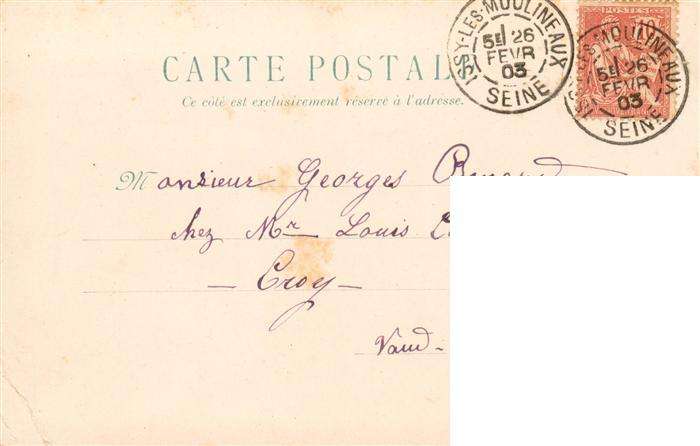 CARTE POSTALE
Ce côté est exclusivement réservé à l'adresse.
ISSY-LES-MOULINEAUX
5E 26
FEVR
03
SEINE
POSTES
10
ISSY-LES-MOULINEAUX
5E 26
FEVR
03
SEINE
Monsieur Georges
chez Mr Louis
— Croy —
Vaud.